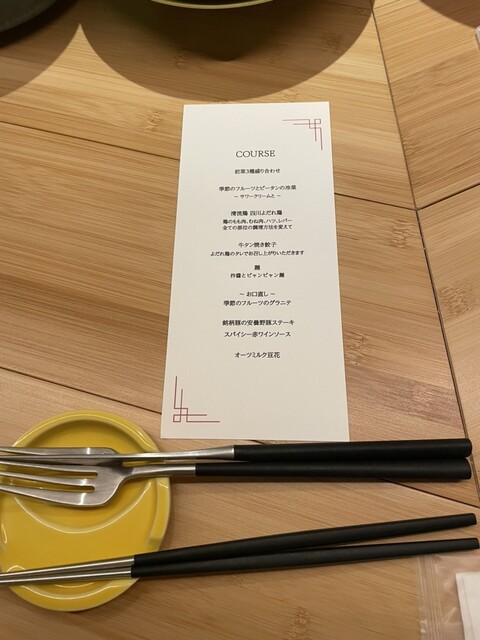 COURSE
前菜3種盛り合わせ
季節のフルーツとピータンの冷菜
～ サワークリームと ～
清流鶏 四川よだれ鶏
鶏のもも肉、むね肉、ハツ、レバー
全ての部位の調理方法を変えて
牛タン焼き餃子
よだれ鶏のタレでお召し上がりいただきます
麺
炸醤とビャンビャン麺
～ お口直し ～
季節のフルーツのグラニテ
銘柄豚の安曇野豚ステーキ
スパイシー赤ワインソース
オーツミルク豆花